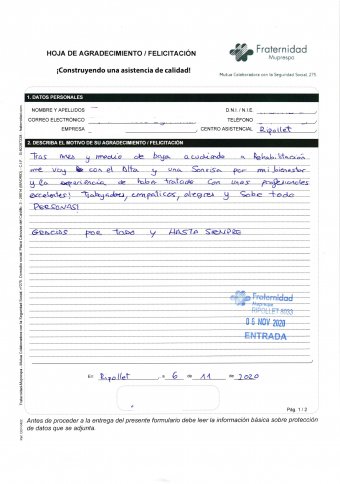 HOJA DE AGRADECIMIENTO / FELICITACIÓN
¡Construyendo una asistencia de calidad!
Fraternidad
Muprespa
Mutua Colaboradora con la Seguridad Social, 275
1. DATOS PERSONALES
NOMBRE Y APELLIDOS D.N.I. / N.I.E.
CORREO ELECTRÓNICO TELÉFONO
EMPRESA CENTRO ASISTENCIAL Ripollet
2. DESCRIBA EL MOTIVO DE SU AGRADECIMIENTO / FELICITACIÓN
Tras mes y medio de baja acudiendo a Rehabilitación
me voy con el Alta y una Sonrisa por mi bienestar
y la experiencia de haber tratado con unos profesionales
excelentes: Trabajadores, empaticos, alegres y sobre todo
PERSONAS!
GRACIAS por todo y HASTA SIEMPRE
Fraternidad
Muprespa
RIPOLLET
06 NOV 2020
ENTRADA
En Ripollet, a 6 de 11 de 2020
Pág. 1 / 2
Antes de proceder a la entrega del presente formulario debe leer la información básica sobre protección
de datos que se adjunta.